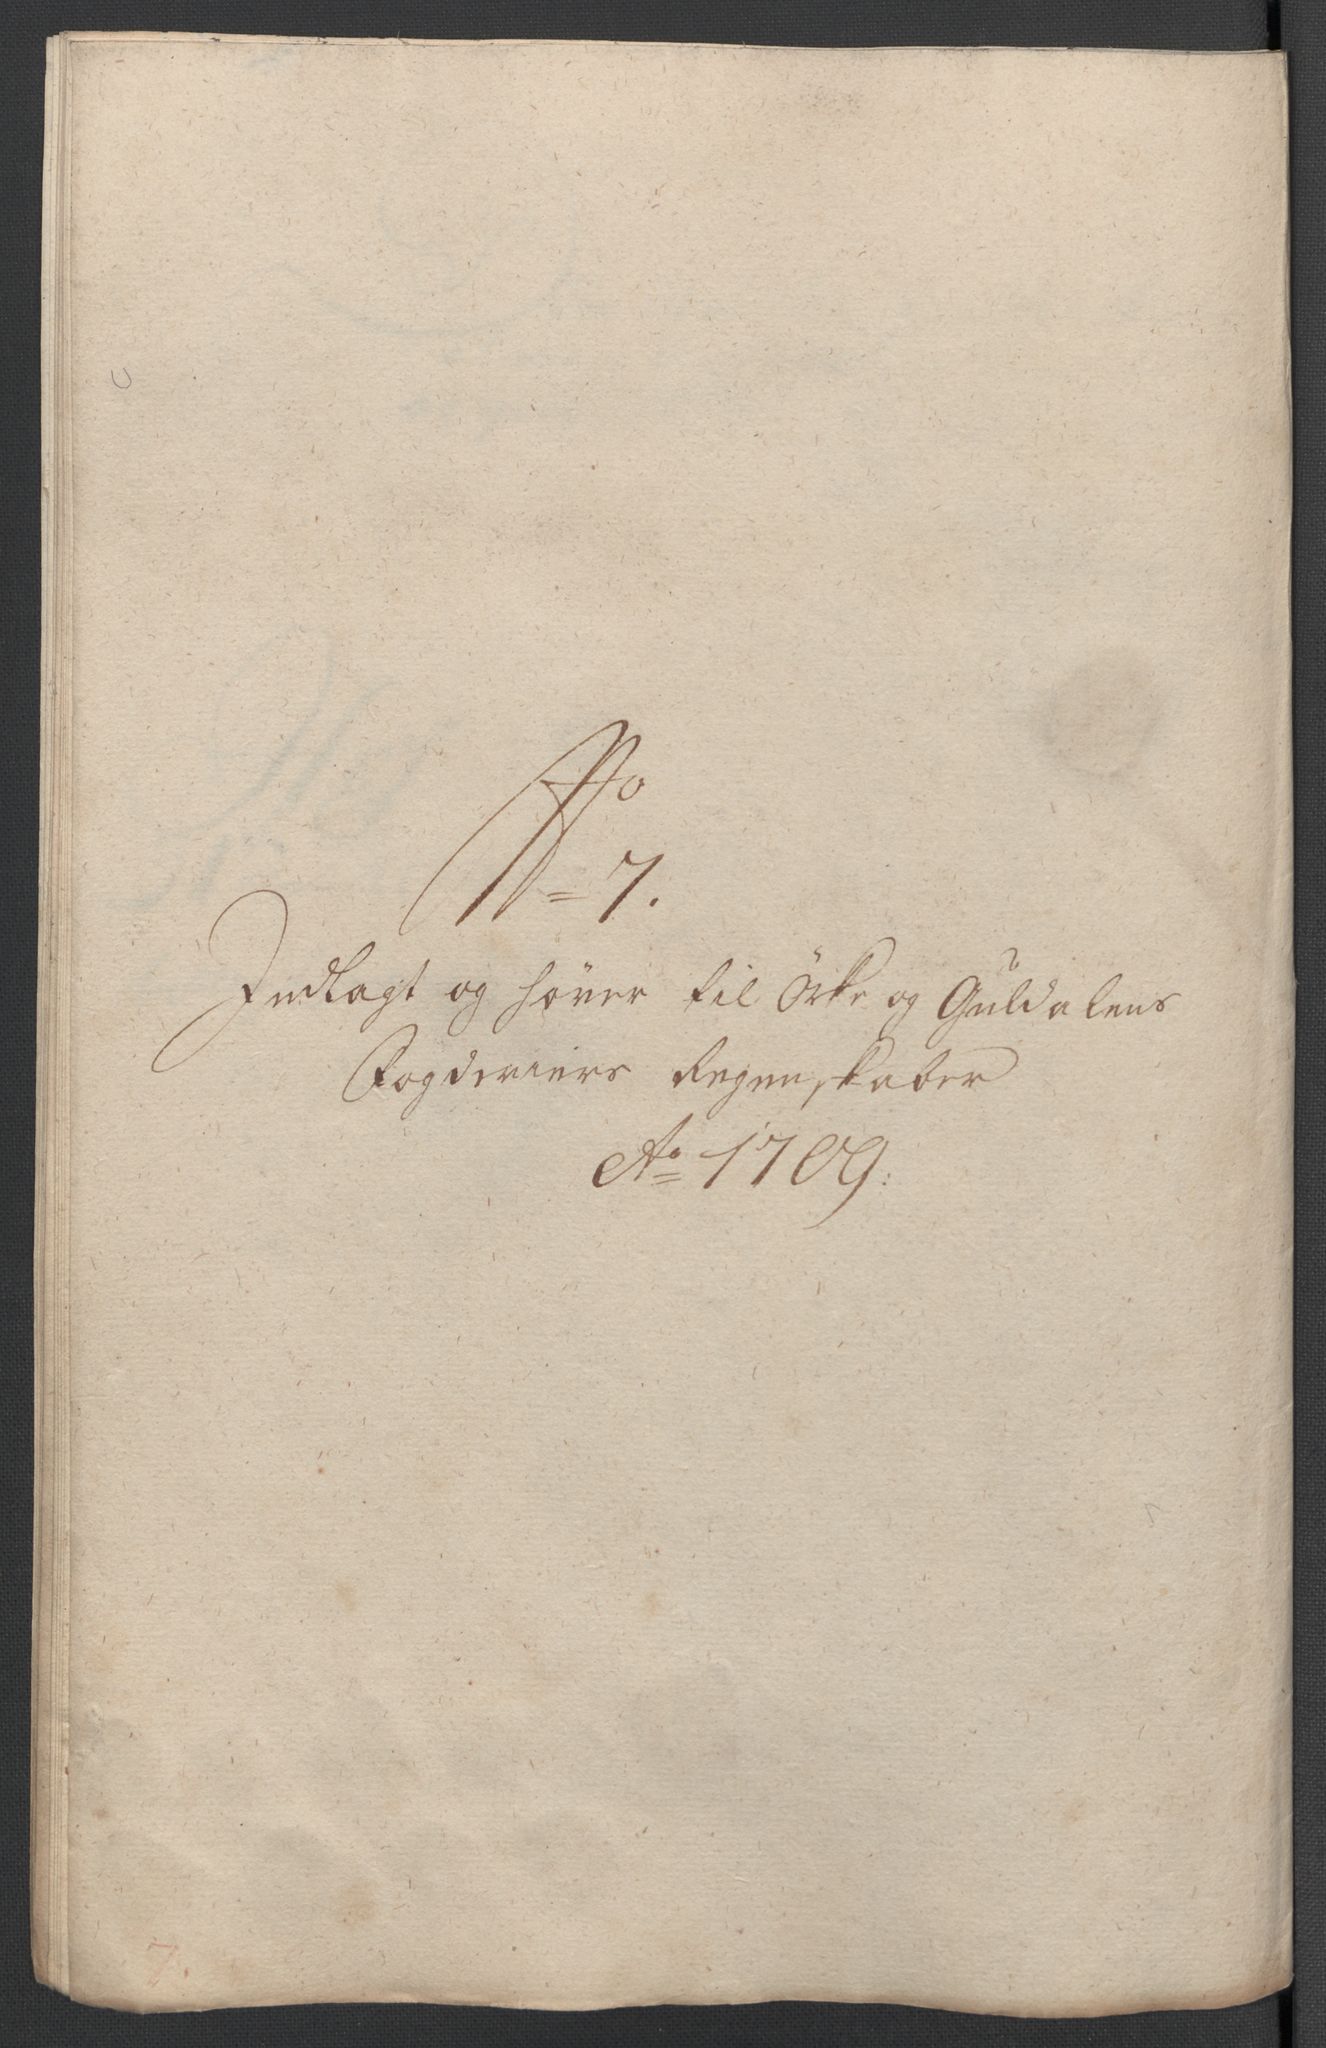 No
= 7.
Indlagt og hører til Örke og Guldalens
Fogderiers Regenskaber
Ao 1709.
7.